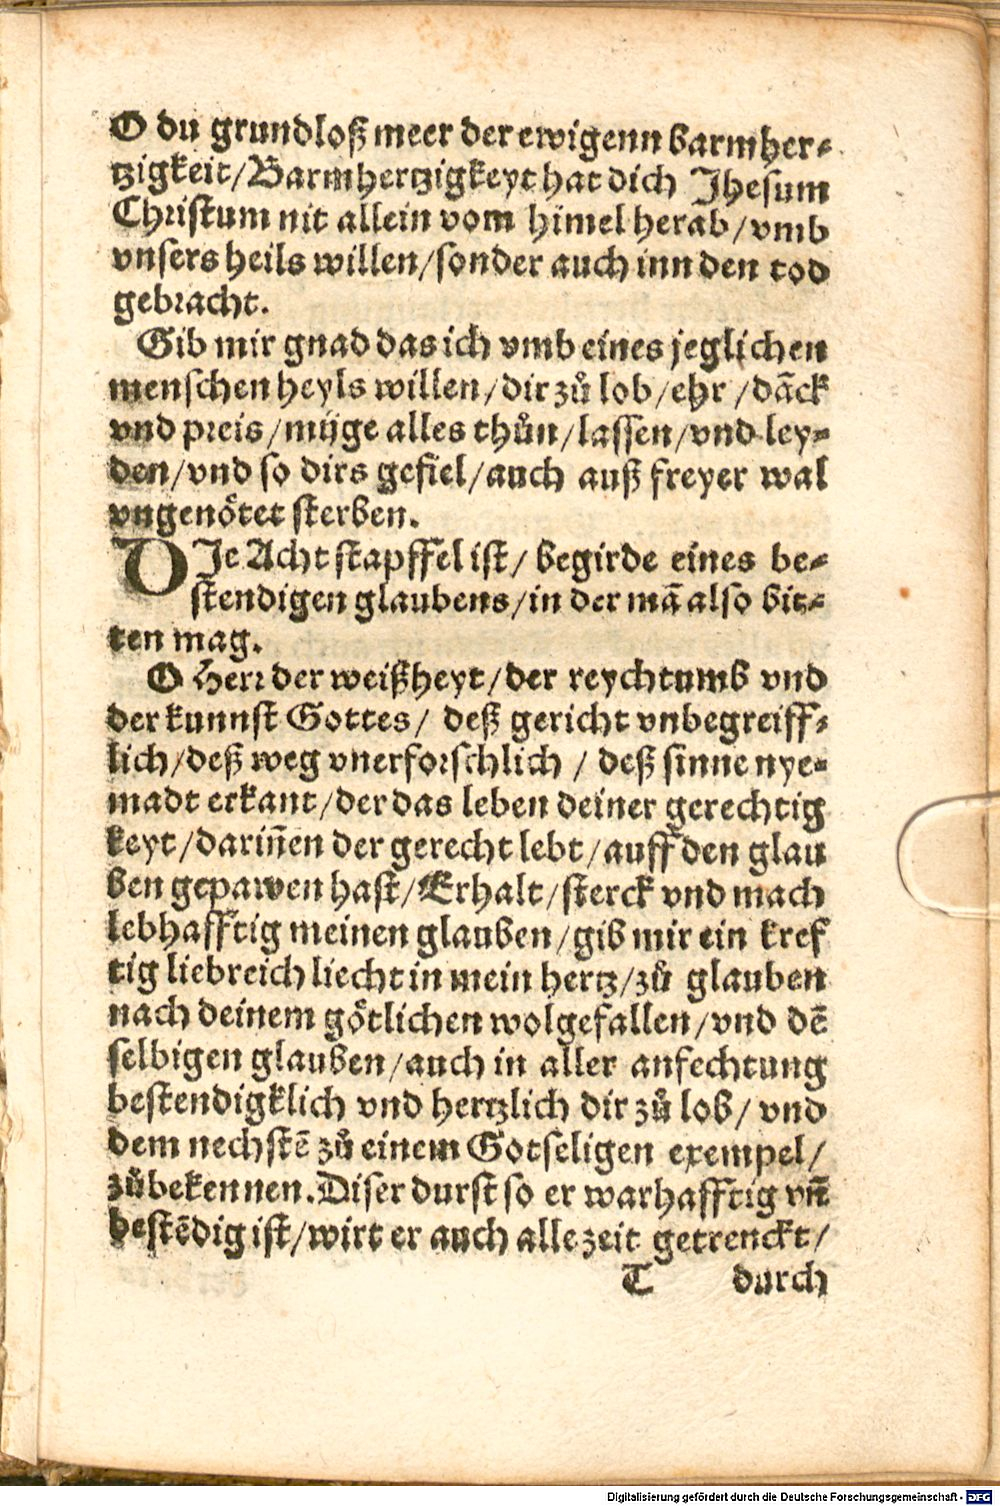 O du grundloß meer der ewigenn barmher⸗
tzigkeit/Barmhertzigkeyt hat dich Jhesum
Christum nit allein vom himel herab/vmb
vnsers heils willen/sonder auch inn den tod
gebracht.
Gib mir gnad das ich vmb eines jeglichen
menschen heyls willen/dir zů lob/ehr/dãck
vnd preis/mӱge alles thůn/lassen/vnd ley⸗
den/vnd so dirs gefiel/auch auß freyer wal
vngenötet sterben.
DJe Acht stapffel ist/begirde eines be⸗
stendigen glaubens/in der mã also bit⸗
ten mag.
O Herr der weißheyt/der reychtumb vnd
der kunnst Gottes/ deß gericht vnbegreiff⸗
lich/deß weg vnerforschlich / deß sinne nye⸗
madt erkant/der das leben deiner gerechtig
keyt/dariñen der gerecht lebt/auff den glau
ben gepawen hast/Erhalt/sterck vnd mach
lebhafftig meinen glauben/gib mir ein kref
tig liebreich liecht in mein hertz/zů glauben
nach deinem götlichen wolgefallen/vnd dẽ
selbigen glauben/auch in aller anfechtung
bestendigklich vnd hertzlich dir zů lob/vnd
dem nechstẽ zů einem Gotseligen exempel/
zůbekennen.Diser durst so er warhafftig vñ
bestẽdig ist/wirt er auch allezeit getrenckt/
T durch
Digitalisierung gefördert durch die Deutsche Forschungsgemeinschaft - DFG